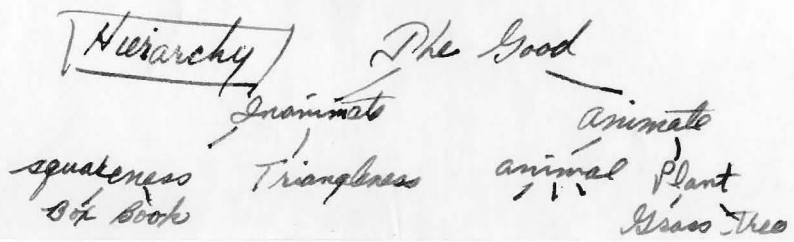 Hierarchy The Good
Inanimate animate
squareness Triangleness animal Plant
Box Book Grass Tree